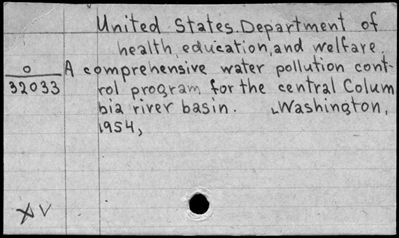 United States. Department of
health, education, and welfare.
O
32033
A comprehensive water pollution cont-
rol program for the central Colum
bia river basin. Washington,
1954,